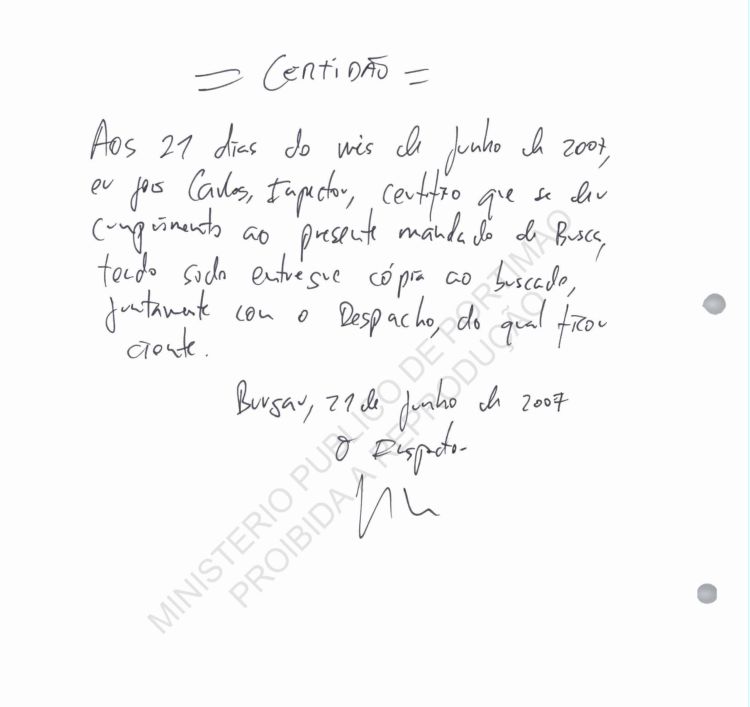 = Certidão =
Aos 21 dias do mês de Junho de 2007,
eu José Carlos, Inspector, certifico que se deu
cumprimento ao presente mandado de Busca,
tendo sido entregue cópia ao buscado,
juntamente com o Despacho, do qual ficou
ciente.
Burgau, 21 de Junho de 2007
O Inspector
MINISTERIO PUBLICO DE PORTIMAO
PROIBIDA A REPRODUÇÃO